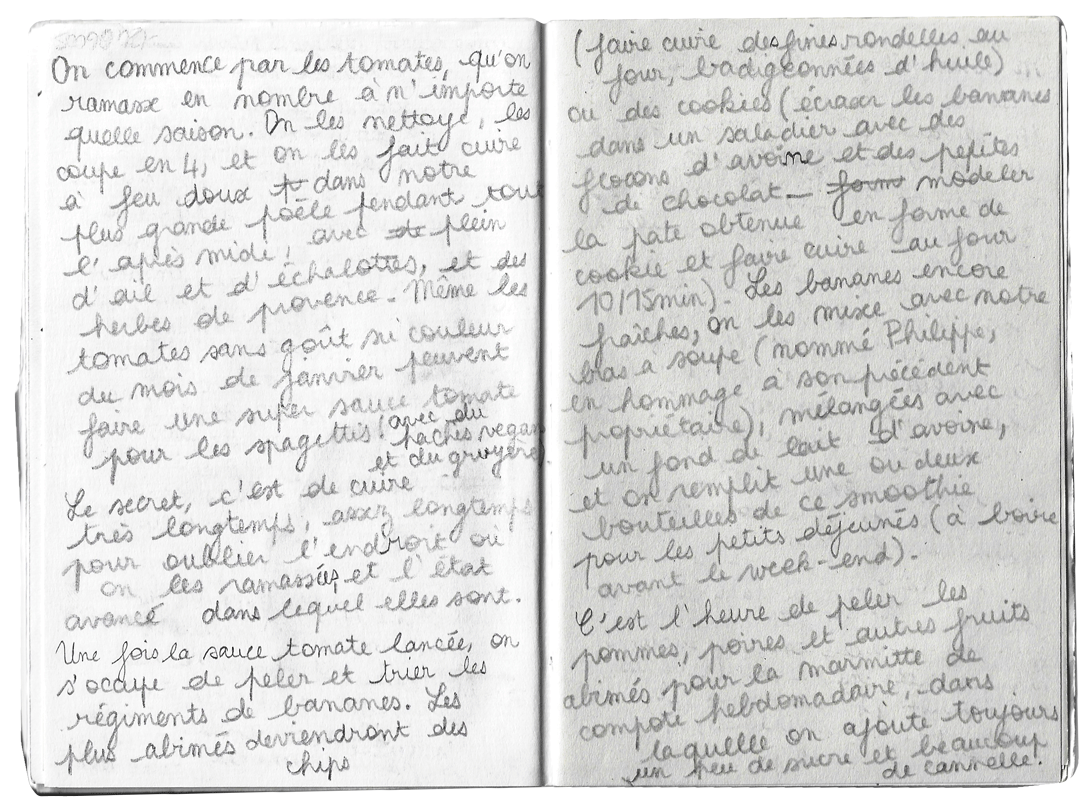 On commence par les tomates, qu'on
ramasse en nombre à n'importe
quelle saison. On les nettoye, les
coupe en 4, et on les fait cuire
à feu doux dans notre
plus grande poêle pendant tout
l'après midi, avec plein
d'ail et d'échalottes, et des
herbes de provence. Même les
tomates sans goût ni couleur
du mois de janvier peuvent
faire une super sauce tomate
pour les spagettis! (avec du
hachés vegan
et du gruyère).
Le secret, c'est de cuire
très longtemps, assez longtemps
pour oublier l'endroit où
on les ramassées, et l'état
avancé dans lequel elles sont.
Une fois la sauce tomate lancée, on
s'occupe de peler et trier les
régiments de bananes. Les
plus abimés deviendront des
chips
(faire cuire des fines rondelles au
four, badigeonnées d'huile)
ou des cookies (écraser les bananes
dans un saladier avec des
flocons d'avoine et des pepites
de chocolat — form modeler
la pate obtenue en forme de
cookie et faire cuire au four
10/15min). Les bananes encore
fraîches, on les mixe avec notre
bras a soupe (nommé Philippe,
en hommage à son précédent
popriétaire), mélangées avec
un fond de lait d'avoine,
et on remplit une ou deux
bouteilles de ce smoothie
pour les petits déjeunés (à boire
avant le week-end).
C'est l'heure de peler les
pommes, poires et autres fruits
abimés pour la marmitte de
compote hebdomadaire, dans
laquelle on ajoute toujours
un peu de sucre et beaucoup
de cannelle.